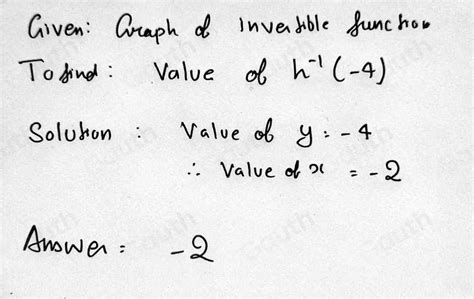 Given: Graph of Invertible function
To find: Value of h⁻¹(-4)
Solution : Value of y = -4
∴ Value of x = -2
Answer = -2